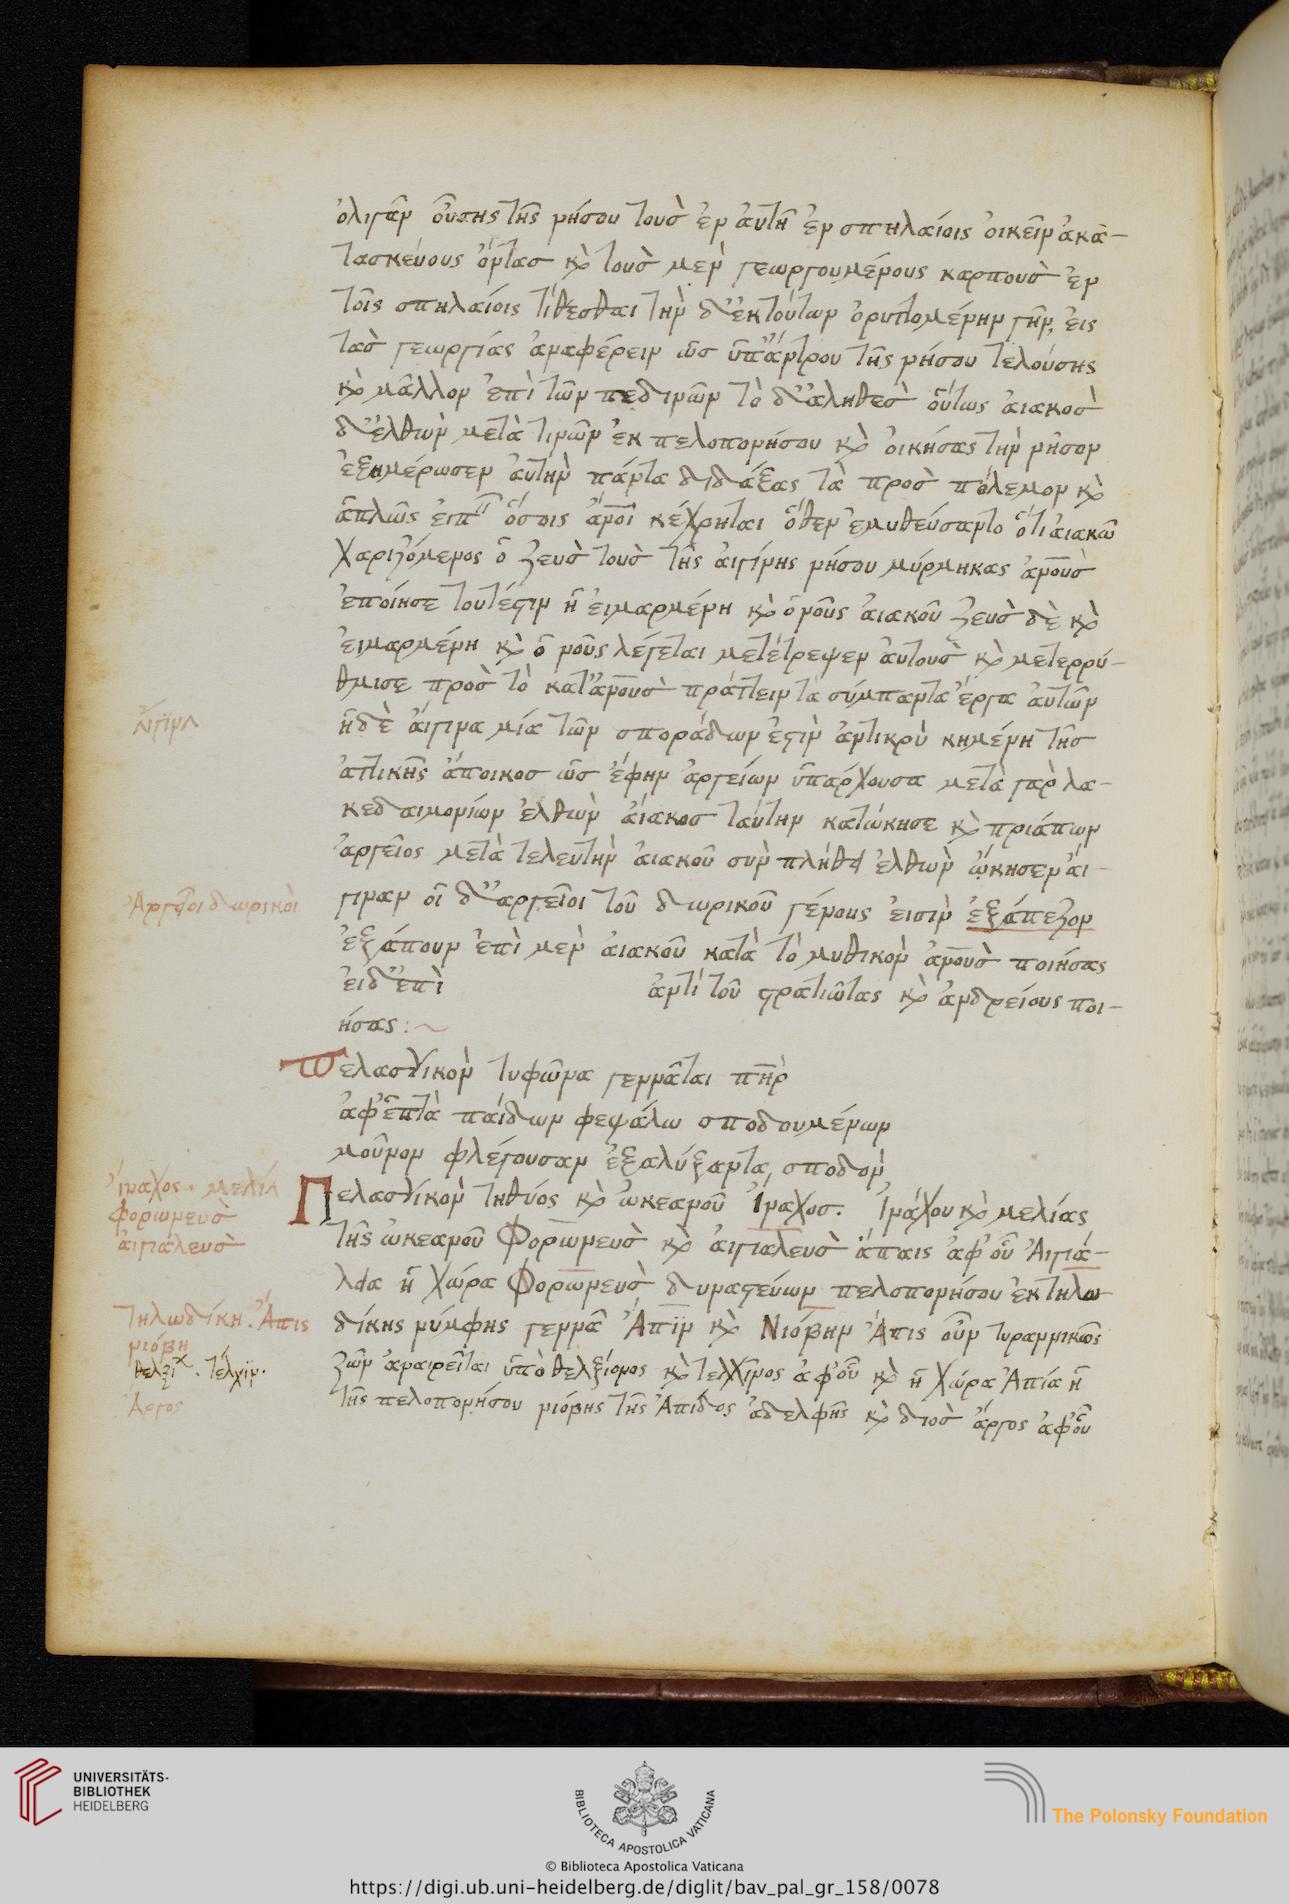 ὀλιγανοῦ οὔσης τῆς νήσου τοὺσ ἐν ἀυτῆ ἐν σπηλαίοις ὀικεῖν ἀκα-
τασκεύους ὄντασ κὶ τοὺσ μὲν γεωργουμένους καρποὺσ ἐν
τοῖς σπηλαίοις τίθεσθαι τὴν δ' ἐκ τούτων ὀρυττομένην γῆν, ἐις
τὰσ γεωργίας ἀναφέρειν ὡσ ὑπ' ἄντρου τῆς νήσου τελούσης
κὶ μᾶλλον ἐπὶ τῶν πεδινῶν τὸ δ' ἀληθεσ οὕτως ἀιακοσ
δ' ἐλθὼν μετὰ τινῶν ἐκ πελοπονήσου κὶ ὀικήσας τὴν νῆσον
ἐξημέρωσεν ἀυτὴν πάντα διδάξας τὰ προσ πόλεμον κὶ
ἁπλῶς ἐιπ ὅσοις ἀνοι κέχρηται ὅθεν ἐμυθεύσαντο ὅτι ἀιακῶ
χαριζόμενος ὁ ζευσ τοὺσ τῆς ἀιγίνης νήσου μύρμηκας ἀνουσ
ἐποίησε τουτέστιν ἡ ἐιμαρμένη κὶ ὁ νοῦς ἀιακοῦ ζευσ δὲ κὶ
ἐιμαρμένη κὶ ὁ νοῦς λέγεται μετέτρεψεν ἀυτοὺσ κὶ μετερρύ-
θμισε προσ τὸ κατ' ἀνουσ πράττειν τὰ σύμπαντα ἔργα ἀυτῶν
ἡ δὲ ἄιγινα μία τῶν σποράδων ἐστὶν ἀντικρὺ κημένη τῆσ
ἀττικῆς ἄποικοσ ὡσ ἔφην ἀργείων ὑπάρχουσα μετὰ γαρ λα-
κεδαιμονίων ἐλθὼν ἀίακοσ ταύτην κατώκησε κὶ πριάπων
ἀργεῖος μετὰ τελευτὴν ἀιακοῦ συν πλήθει ἐλθὼν ᾤκησεν ἀί-
γιναν οἱ δ' ἀργεῖοι τοῦ δωρικοῦ γένους ἐισὶν ἐξάπεζον
ἐξάπουν ἐπὶ μὲν ἀιακοῦ κατὰ τὸ μυθικὸν ἀνουσ ποιήσας
ἐι δ' ἐπὶ ἀντὶ τοῦ στρατιῶτας κὶ ἀνδρείους ποι-
ήσας :~
Πελασγικὸν τυφῶνα γεννᾶται πηρ
ἀφ' ἑπτὰ παίδων φεψάλω σποδουμένων
μοῦνον φλέγουσαν ἐξαλύξαντα, σποδὸν
Πελασγικὸν τηθύος κὶ ὠκεανοῦ Ἴναχοσ. Ἰνάχου κὶ μελίας
τῆς ὠκεανοῦ Φορωνεὺσ κὶ ἀιγιαλευσ ἄπαις ἀφ' οὗ Ἀιγιά-
λεια ἡ χώρα Φορωνεὺσ δυναστεύων πελοπονήσου ἐκ τηλω
δίκης νύμφης γεννᾶ Ἄπϊν κὶ Νιόβην Ἄπις οὖν τυραννικῶς
ζῶν ἀναιρεῖται ὑπὸ θελξίονος κὶ τελχῖνος ἀφ' οὗ κὶ ἡ χώρα Ἀπία ἡ
τῆς πελοπονήσου νιόβης τῆς Ἄπιδος ἀδελφῆς κὶ διοσ ἄργος ἀφ' οὗ
Ἄιγινα
Ἀργεῖοι δωρικοὶ
Ἴναχος. μελία
Φορωνεὺσ
ἀιγιάλευσ
Τηλωδίκη. Ἄπις
νιόβη
θελξί. τέλχιν.
Ἄργος
UNIVERSITÄTS-
BIBLIOTHEK
HEIDELBERG
BIBLIOTECA APOSTOLICA VATICANA
The Polonsky Foundation
© Biblioteca Apostolica Vaticana
https://digi.ub.uni-heidelberg.de/diglit/bav_pal_gr_158/0078